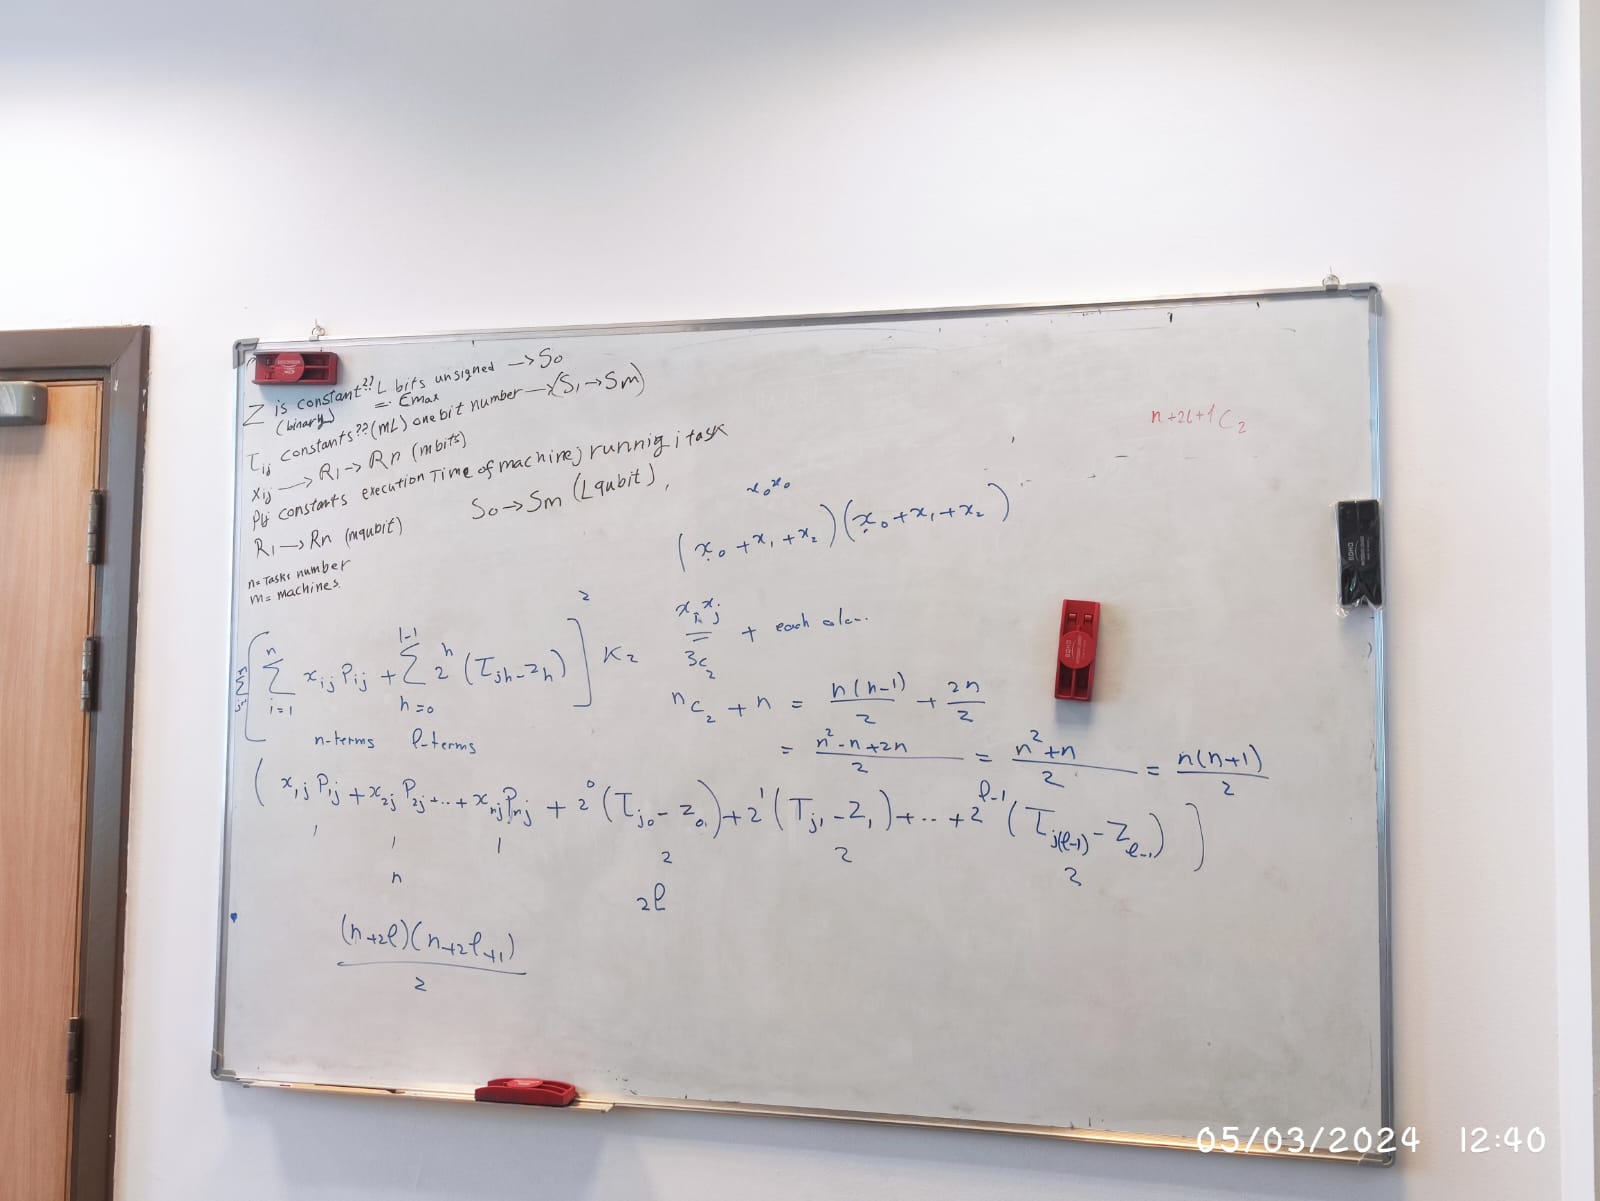 Z is constant?? L bits unsigned → S0
(binary) = Emax
τij constants?? (mL) one bit number → (S1 → Sm)
xij → R1 → Rn (mbits)
Pij constants execution Time of machine j runnig i task
R1 → Rn (mqubit)
S0 → Sm (Lqubit),
n= Tasks number
m= machines.
n+2l+1C2
x0x0
(x0 + x1 + x2)(x0 + x1 + x2)
xixj + each
3C2
[∑i=1^n xij Pij + ∑h=0^(l-1) 2^h (τjh - zh)]^2 K2
n-terms l-terms
nC2 + n = n(n-1)/2 + 2n/2
= (n^2 - n + 2n)/2 = (n^2 + n)/2 = n(n+1)/2
(x1j P1j + x2j P2j + ... + xnj Pnj + 2^0 (τj0 - z0) + 2^1 (τj1 - z1) + .. + 2^(l-1) (τj(l-1) - zl-1))
1 1 1 2 2 2
n 2l
(n+2l)(n+2l+1)/2
BOHO
BOHO
05/03/2024 12:40